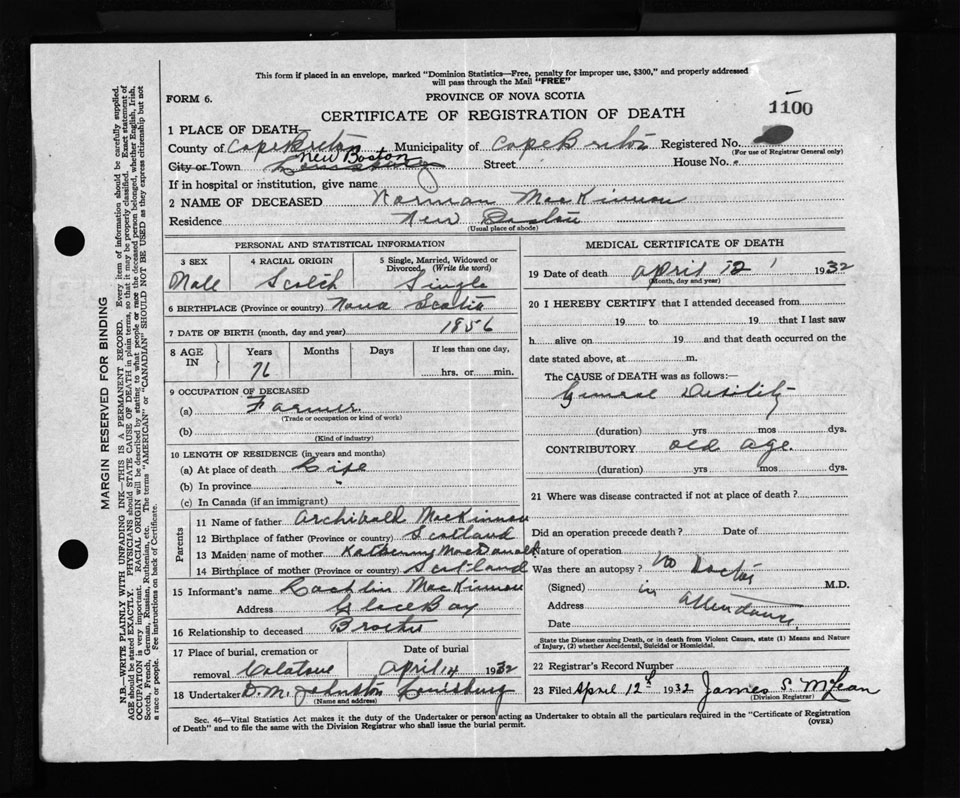 This form if placed in an envelope, marked "Dominion Statistics—Free, penalty for improper use, $300," and properly addressed
will pass through the Mail "FREE"
FORM 6.
PROVINCE OF NOVA SCOTIA
1100
CERTIFICATE OF REGISTRATION OF DEATH
1 PLACE OF DEATH
County of Cape Breton Municipality of Cape Breton Registered No.
(For use of Registrar General only)
New Boston
City or Town Louisburg Street House No.
If in hospital or institution, give name
2 NAME OF DECEASED Norman MacKinnon
Residence New Boston
(Usual place of abode)
PERSONAL AND STATISTICAL INFORMATION
3 SEX 4 RACIAL ORIGIN 5 Single, Married, Widowed or Divorced, (Write the word)
Male Scotch Single
6 BIRTHPLACE (Province or country) Nova Scotia
7 DATE OF BIRTH (month, day and year) 1856
8 AGE IN Years Months Days If less than one day,
76 hrs. or min.
9 OCCUPATION OF DECEASED
(a) Farmer
(Trade or occupation or kind of work)
(b)
(Kind of industry)
10 LENGTH OF RESIDENCE (in years and months)
(a) At place of death Life
(b) In province
(c) In Canada (if an immigrant)
Parents
11 Name of father Archibald MacKinnon
12 Birthplace of father (Province or country) Scotland
13 Maiden name of mother Katherine MacDonald
14 Birthplace of mother (Province or country) Scotland
15 Informant's name Lachlin MacKinnon
Address Glace Bay
16 Relationship to deceased Brother
17 Place of burial, cremation or removal Date of burial
Calatone April 14 1932
18 Undertaker D. M. Johnston Louisburg
(Name and address)
MEDICAL CERTIFICATE OF DEATH
19 Date of death April 12 1932
(Month, day and year)
20 I HEREBY CERTIFY that I attended deceased from
19 to 19 that I last saw
h alive on 19 and that death occurred on the
date stated above, at m.
The CAUSE of DEATH was as follows:—
General Debility
(duration) yrs mos dys.
CONTRIBUTORY old age
(duration) yrs mos dys.
21 Where was disease contracted if not at place of death?
Did an operation precede death? Date of
Nature of operation
Was there an autopsy? No Doctor
(Signed) in M.D.
Address attendance.
Date
State the Disease causing Death, or in death from Violent Causes, state (1) Means and Nature
of Injury, (2) whether Accidental, Suicidal or Homicidal.
22 Registrar's Record Number
23 Filed April 12th 1932 James S. McLean
(Division Registrar)
Sec. 46—Vital Statistics Act makes it the duty of the Undertaker or person acting as Undertaker to obtain all the particulars required in the "Certificate of Registration
of Death" and to file the same with the Division Registrar who shall issue the burial permit.
(OVER)
MARGIN RESERVED FOR BINDING
N.B.—WRITE PLAINLY WITH UNFADING INK—THIS IS A PERMANENT RECORD. Every item of information should be carefully supplied.
AGE should be stated EXACTLY. PHYSICIANS should STATE CAUSE OF DEATH in plain terms, so that it may be properly classified. Exact statement of
OCCUPATION is very important. RACIAL ORIGIN will be described by stating to what people or race the deceased person belonged, whether English, Irish,
Scotch, French, German, Russian, Ruthenian, etc. The terms "AMERICAN" or "CANADIAN" SHOULD NOT BE USED as they express citizenship but not
a race or people. See instructions on back of Certificate.